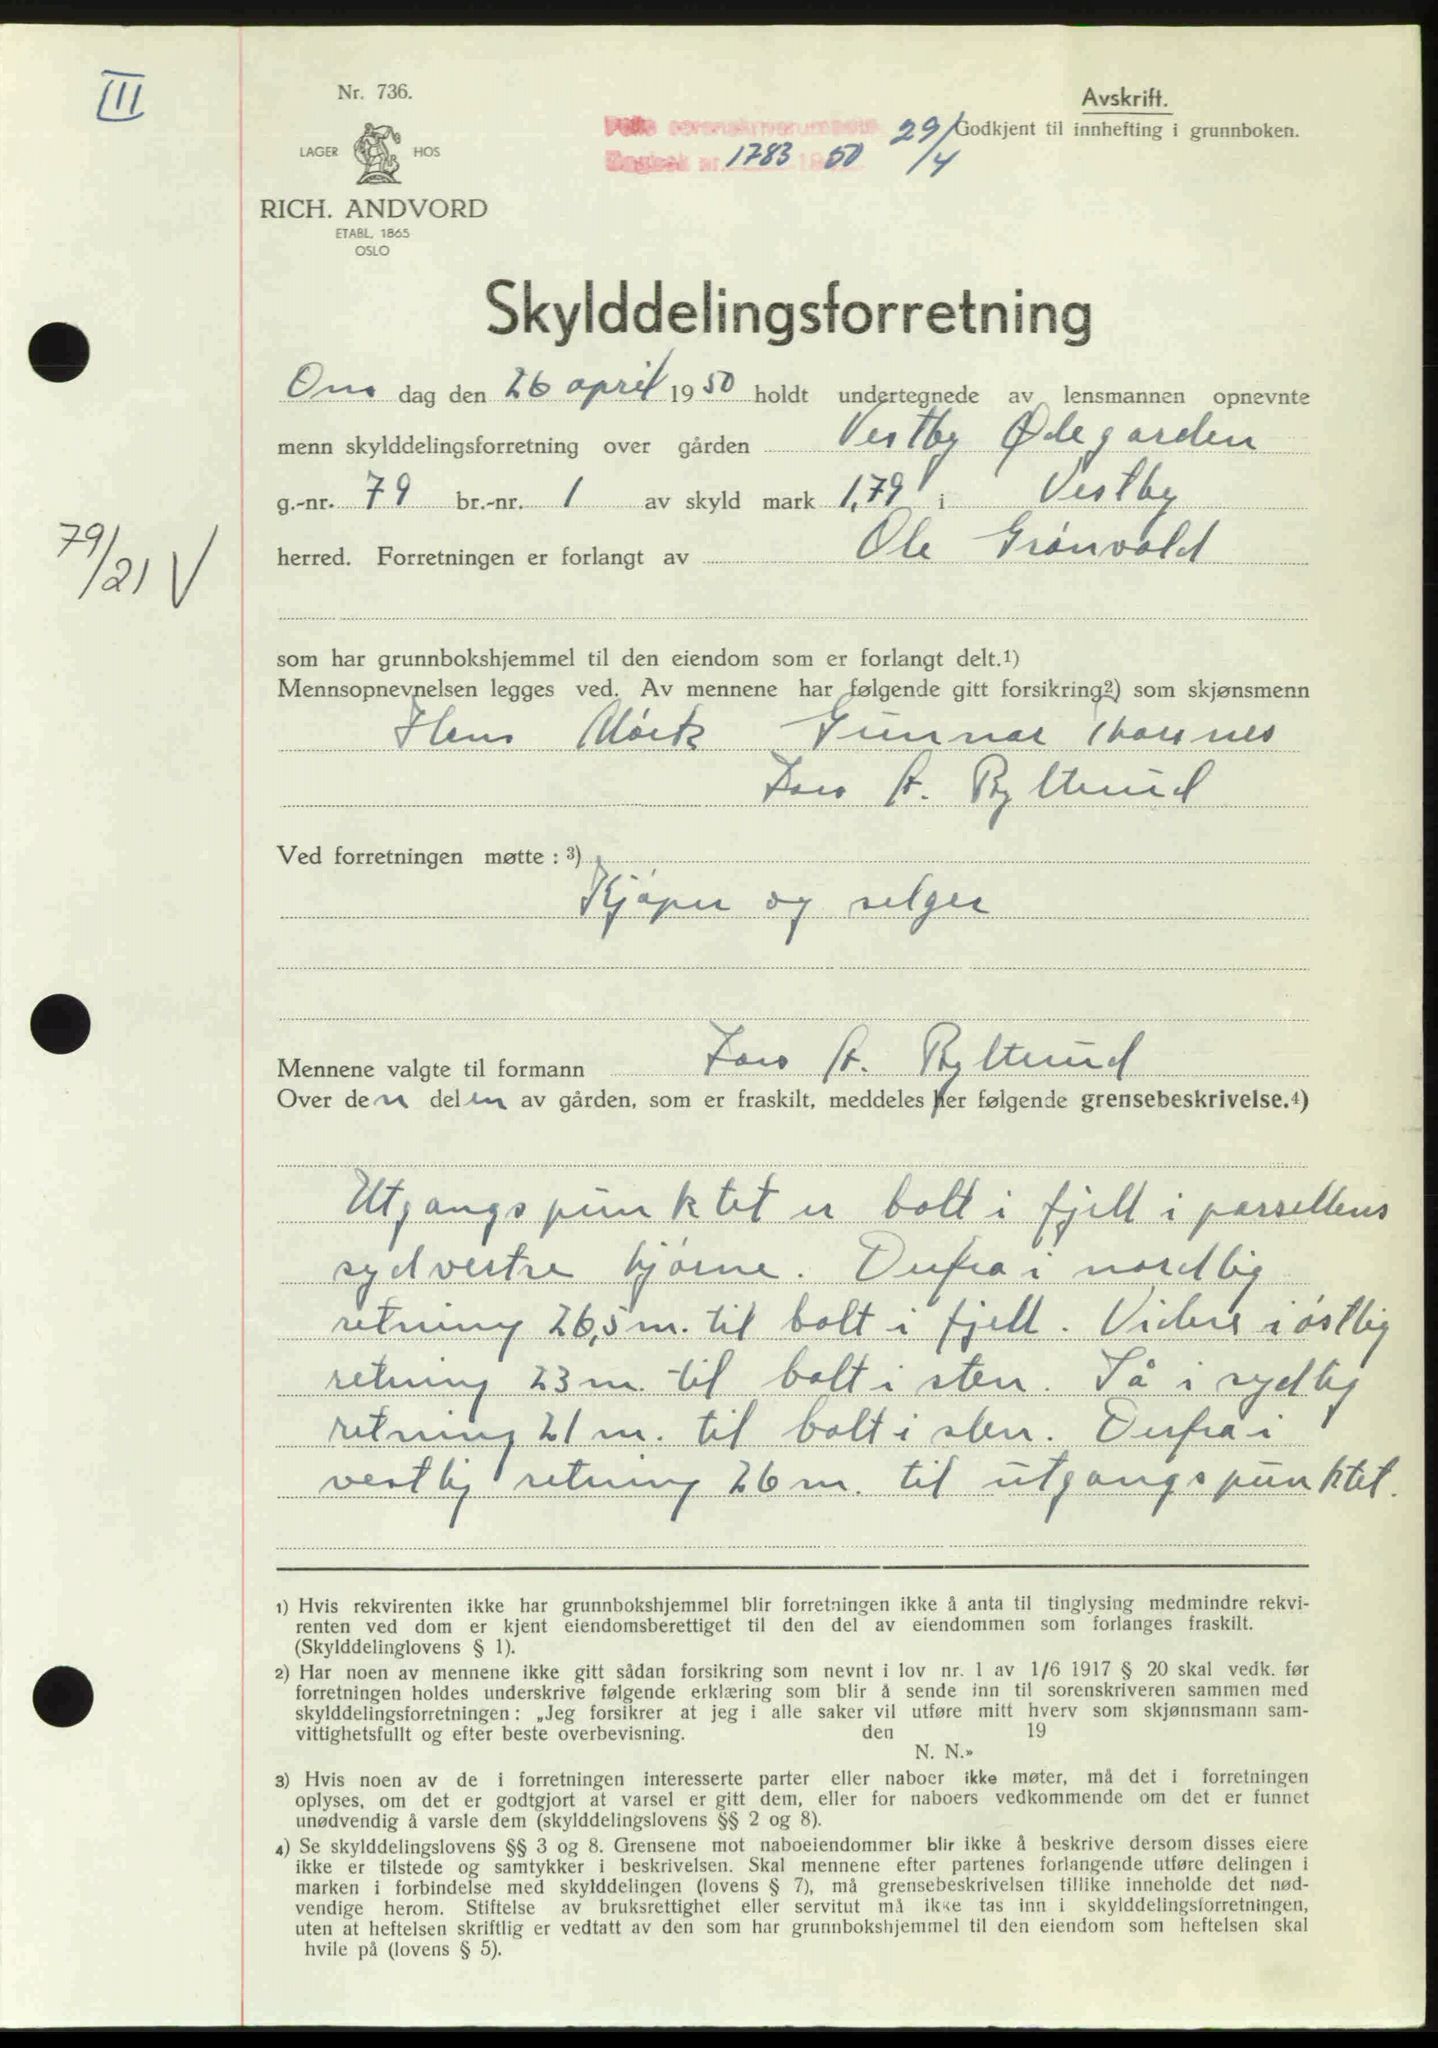 III
Nr. 736.
LAGER HOS
RICH. ANDVORD
ETABL. 1865
OSLO
Avskrift.
Godkjent til innhefting i grunnboken.
Follo sorenskriverembete
Dagbok nr. 1783 1950 29/4
Skylddelingsforretning
Ons dag den 26 april 1950 holdt undertegnede av lensmannen opnevnte
menn skylddelingsforretning over gården Vestby Ødegarden
g.-nr. 79 br.-nr. 1 av skyld mark 1,79 i Vestby
79/21 V
herred. Forretningen er forlangt av Ole Grønvold
som har grunnbokshjemmel til den eiendom som er forlangt delt.1)
Mennsopnevnelsen legges ved. Av mennene har følgende gitt forsikring2) som skjønsmenn
Hans Mørk Gunnar
A. Ryltund
Ved forretningen møtte : 3)
Kjøper og selger
Mennene valgte til formann A. Ryltund
Over den delen av gården, som er fraskilt, meddeles her følgende grensebeskrivelse.4)
Utgangspunktet er bolt i fjell i parsellens
sydvestre hjørne. Derfra i nordlig
retning 26,5 m. til bolt i fjell. Videre i østlig
retning 23 m. til bolt i sten. Så i sydlig
retning 21 m. til bolt i sten. Derfra i
vestlig retning 26 m. til utgangspunktet.
1) Hvis rekvirenten ikke har grunnbokshjemmel blir forretningen ikke å anta til tinglysing medmindre rekvi-
renten ved dom er kjent eiendomsberettiget til den del av eiendommen som forlanges fraskilt.
(Skylddelinglovens § 1).
2) Har noen av mennene ikke gitt sådan forsikring som nevnt i lov nr. 1 av 1/6 1917 § 20 skal vedk. før
forretningen holdes underskrive følgende erklæring som blir å sende inn til sorenskriveren sammen med
skylddelingsforretningen: „Jeg forsikrer at jeg i alle saker vil utføre mitt hverv som skjønnsmann sam-
vittighetsfullt og efter beste overbevisning. den 19
N. N.»
3) Hvis noen av de i forretningen interesserte parter eller naboer ikke møter, må det i forretningen
oplyses, om det er godtgjort at varsel er gitt dem, eller for naboers vedkommende om det er funnet
unødvendig å varsle dem (skylddelingslovens §§ 2 og 8).
4) Se skylddelingslovens §§ 3 og 8. Grensene mot naboeiendommer blir ikke å beskrive dersom disses eiere
ikke er tilstede og samtykker i beskrivelsen. Skal mennene efter partenes forlangende utføre delingen i
marken i forbindelse med skylddelingen (lovens § 7), må grensebeskrivelsen tillike inneholde det nød-
vendige herom. Stiftelse av bruksrettighet eller servitut må ikke tas inn i skylddelingsforretningen,
uten at heftelsen skriftlig er vedtatt av den som har grunnbokshjemmel til den eiendom som heftelsen skal
hvile på (lovens § 5).